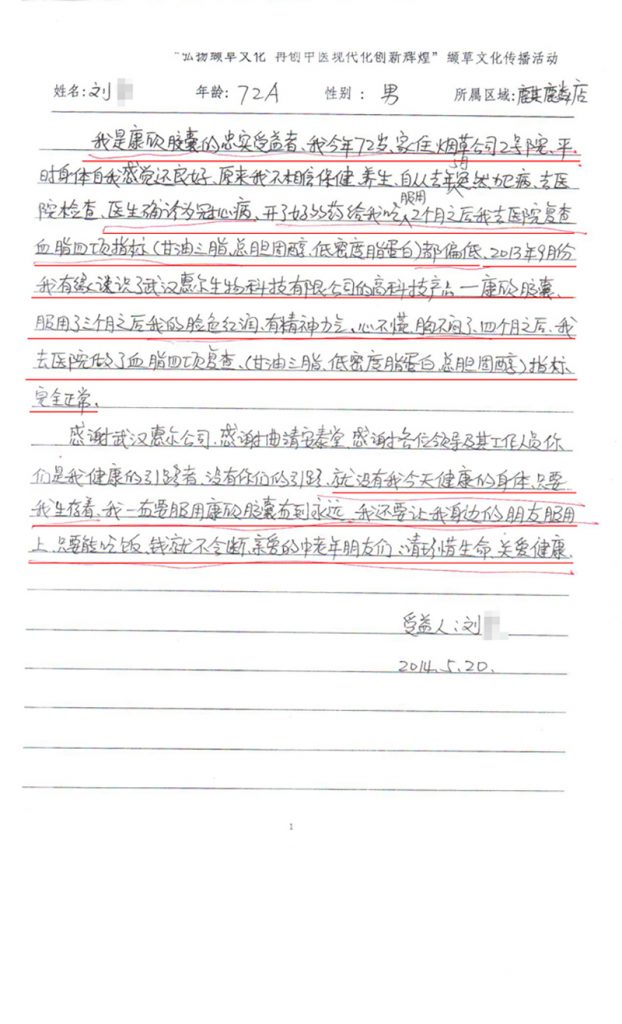 “弘扬缬草文化 再创中医现代化创新辉煌” 缬草文化传播活动
姓名: 刘 年龄: 72人 性别: 男 所属区域: 麒麟店
我是康欣胶囊的忠实受益者、我今年72岁、家住烟草公司2号院、平
时身体自我感觉还良好、原来我不相信保健、养生、自从去年5月突然犯病、去医
院检查、医生确诊为冠心病、开了好的药给我吃、服用2个月之后我去医院复查
血脂四项指标(甘油三脂、总胆固醇、低密度脂蛋白)都偏低、2013年9月份
我有缘谈识了武汉惠尔生物科技有限公司的高科技产品—康欣胶囊、
服用了三个月之后我的脸色红润、有精神力气、心不慌、胸不闷了、四个月之后、我
去医院做了血脂四项复查、(甘油三脂、低密度脂蛋白、总胆固醇)指标
完全正常、
感谢武汉惠尔公司、感谢曲靖安泰堂、感谢各位领导及其工作人员你
们是我健康的引路者、没有你们的引路、就没有我今天健康的身体、只要
我生存着、我一直要服用康欣胶囊直到永远、我还要让我身边的朋友服用
上、只要能吃饭、钱就不会断、亲爱的中老年朋友们、请珍惜生命、关爱健康、
受益人:刘
2014.5.20.
1